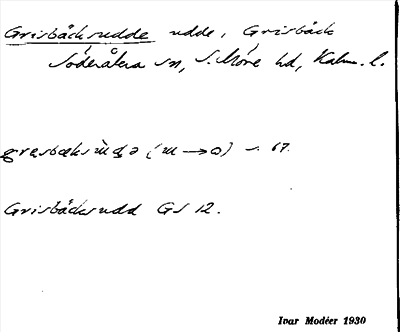 Grisbäcksudde udde, Grisbäck
Söderåkra sn, S. Möre hd, Kalm. l.
s. 67.
Grisbäcksudd GS 12.
Ivar Modéer 1930